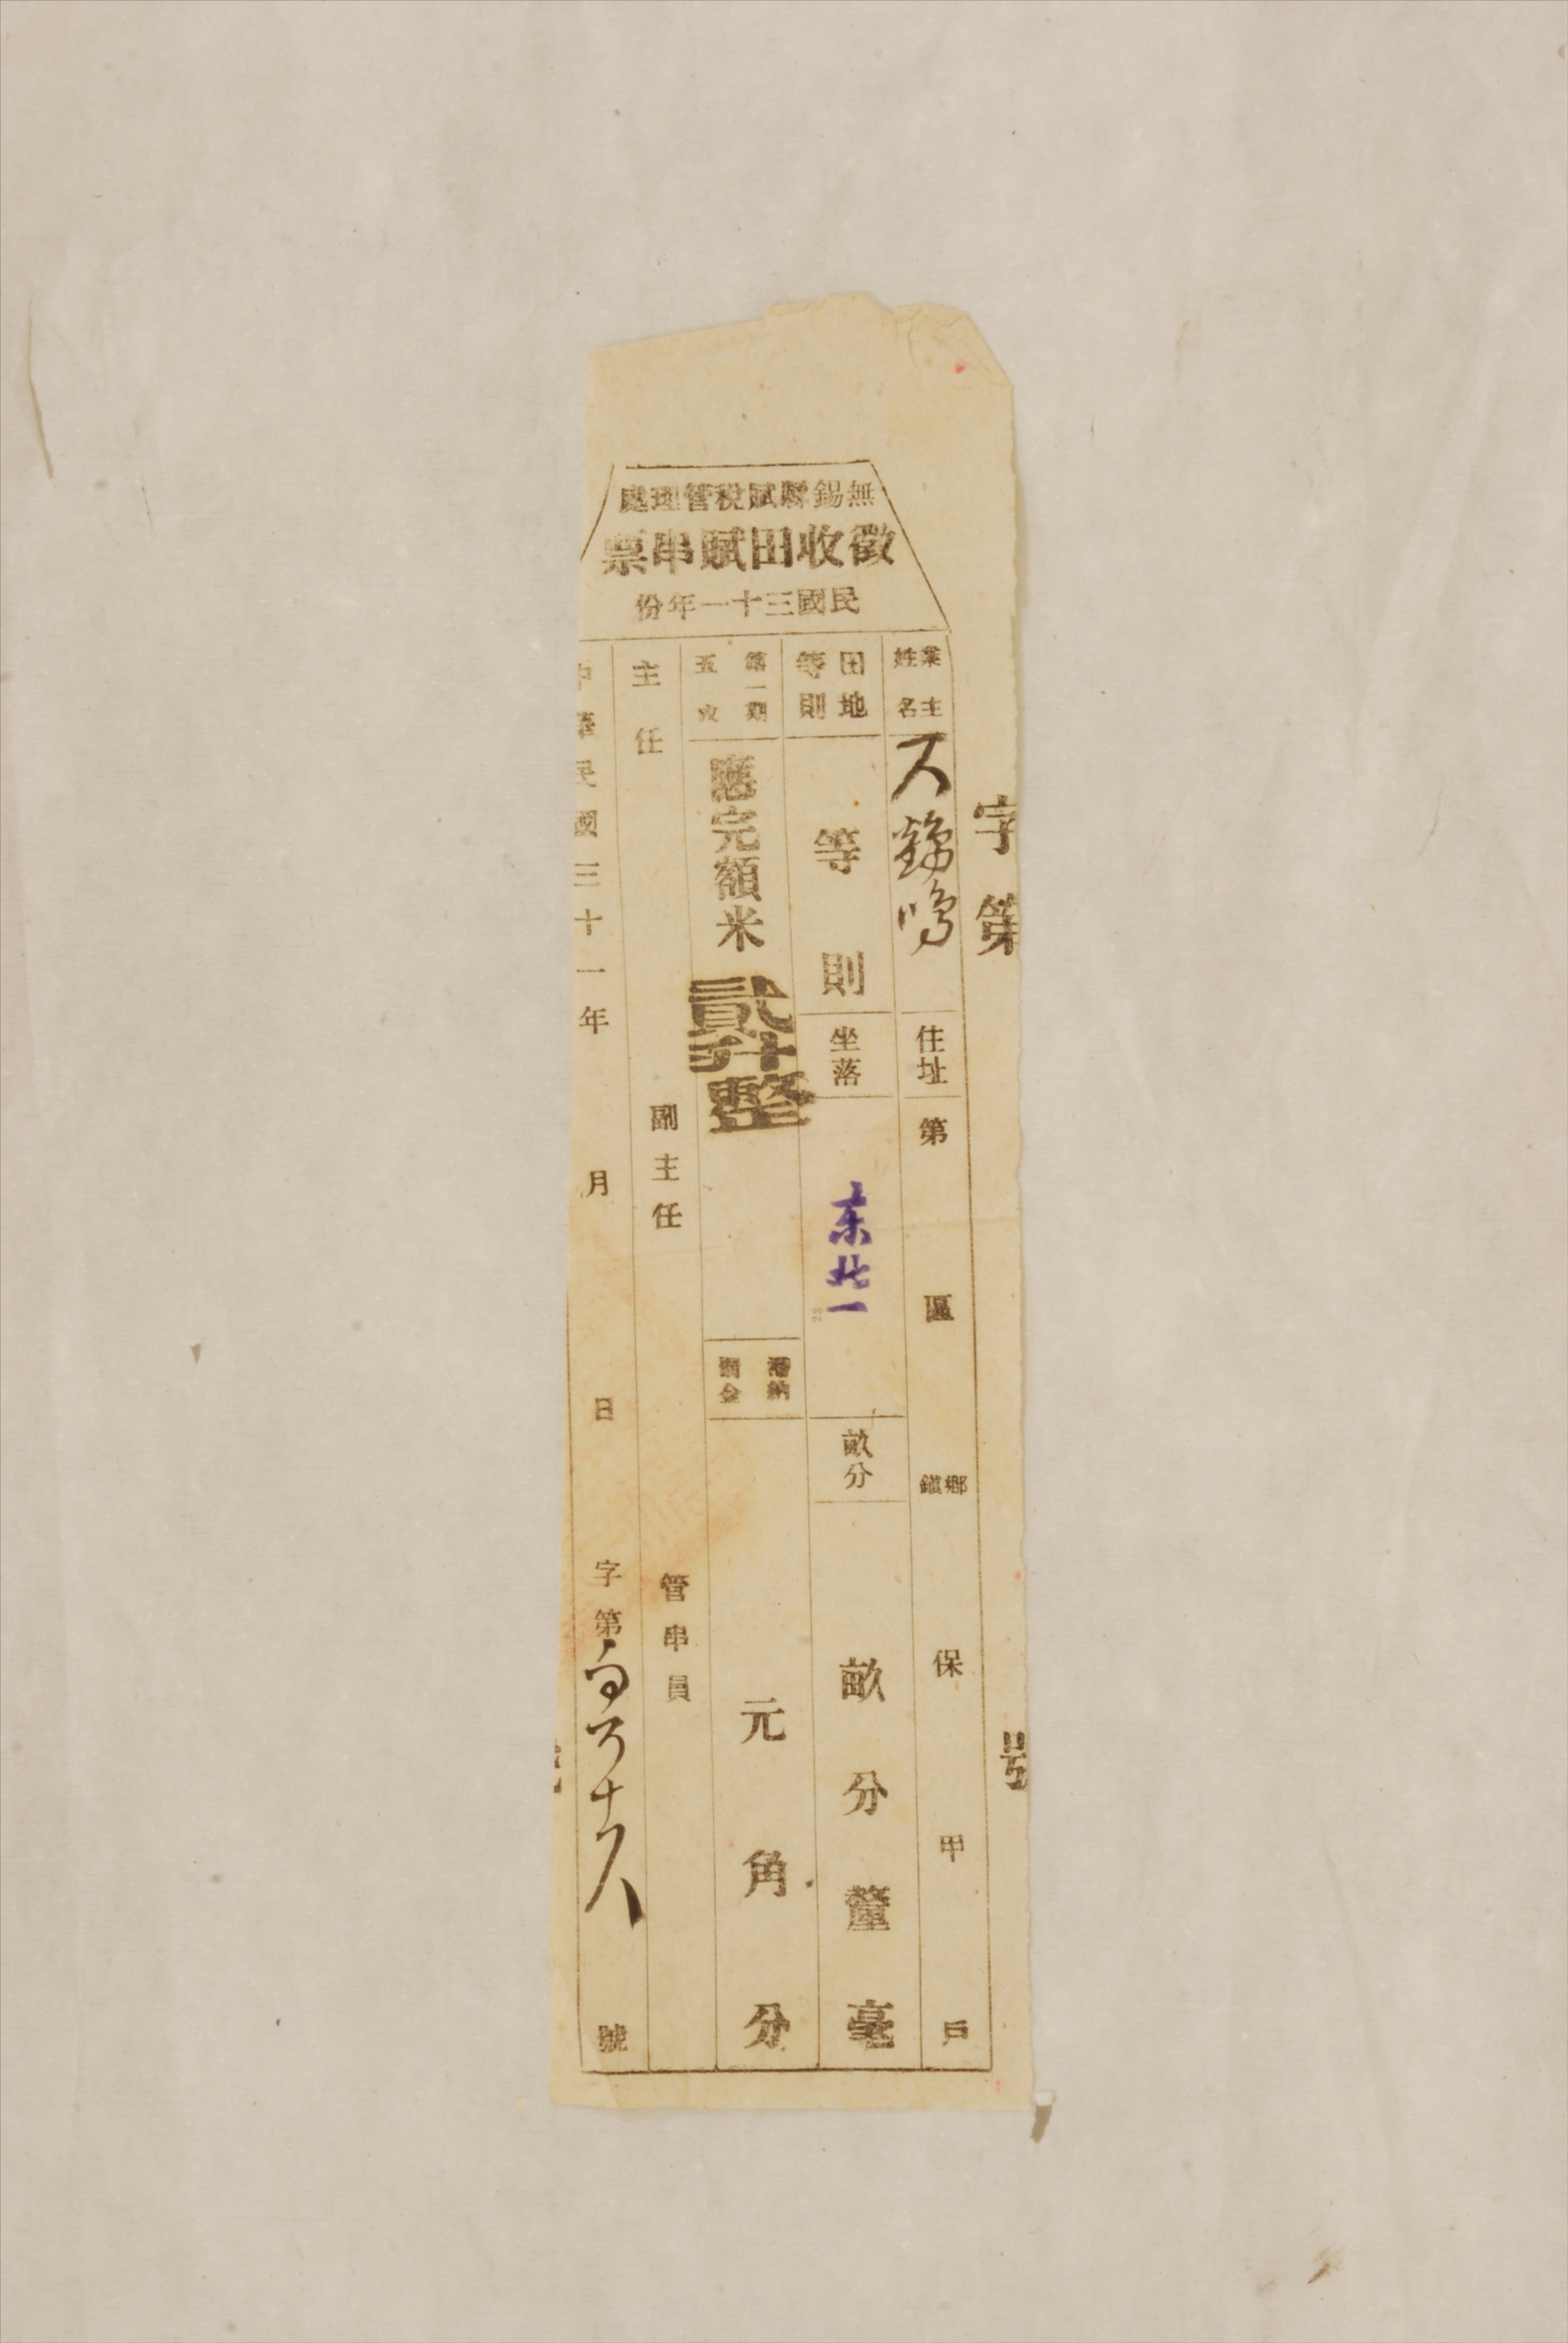 無錫縣賦稅管理處
徵收田賦串票
民國三十一年份
字第 號
業主姓名
鳴
住址 第 區 鄉鎮 保 甲 戶
田地等則 等 則 坐落 东北一 畝分 畝 分 釐 毫
第一期五成 應完額米 貳升整 滯納罰金 元 角 分
主任 副主任 管串員
中華民國三十一年 月 日 字第 號